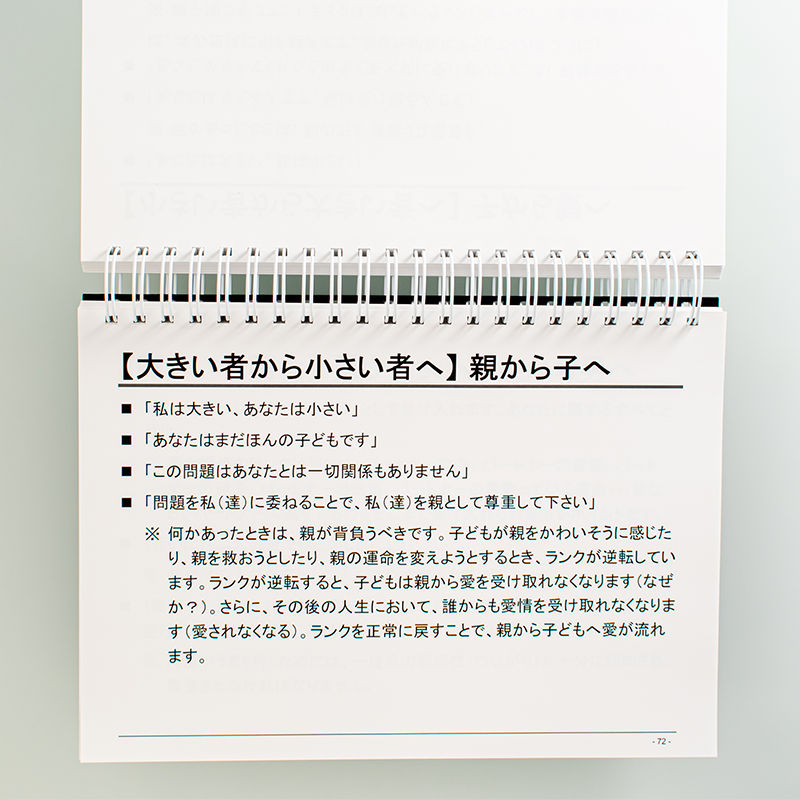 【大きい者から小さい者へ】 親から子へ
■ 「私は大きい、あなたは小さい」
■ 「あなたはまだほんの子どもです」
■ 「この問題はあなたとは一切関係もありません」
■ 「問題を私(達)に委ねることで、私(達)を親として尊重して下さい」
※ 何かあったときは、親が背負うべきです。子どもが親をかわいそうに感じた
り、親を救おうとしたり、親の運命を変えようとするとき、ランクが逆転してい
ます。ランクが逆転すると、子どもは親から愛を受け取れなくなります(なぜ
か?)。さらに、その後の人生において、誰からも愛情を受け取れなくなりま
す(愛されなくなる)。ランクを正常に戻すことで、親から子どもへ愛が流れ
ます。
- 72 -